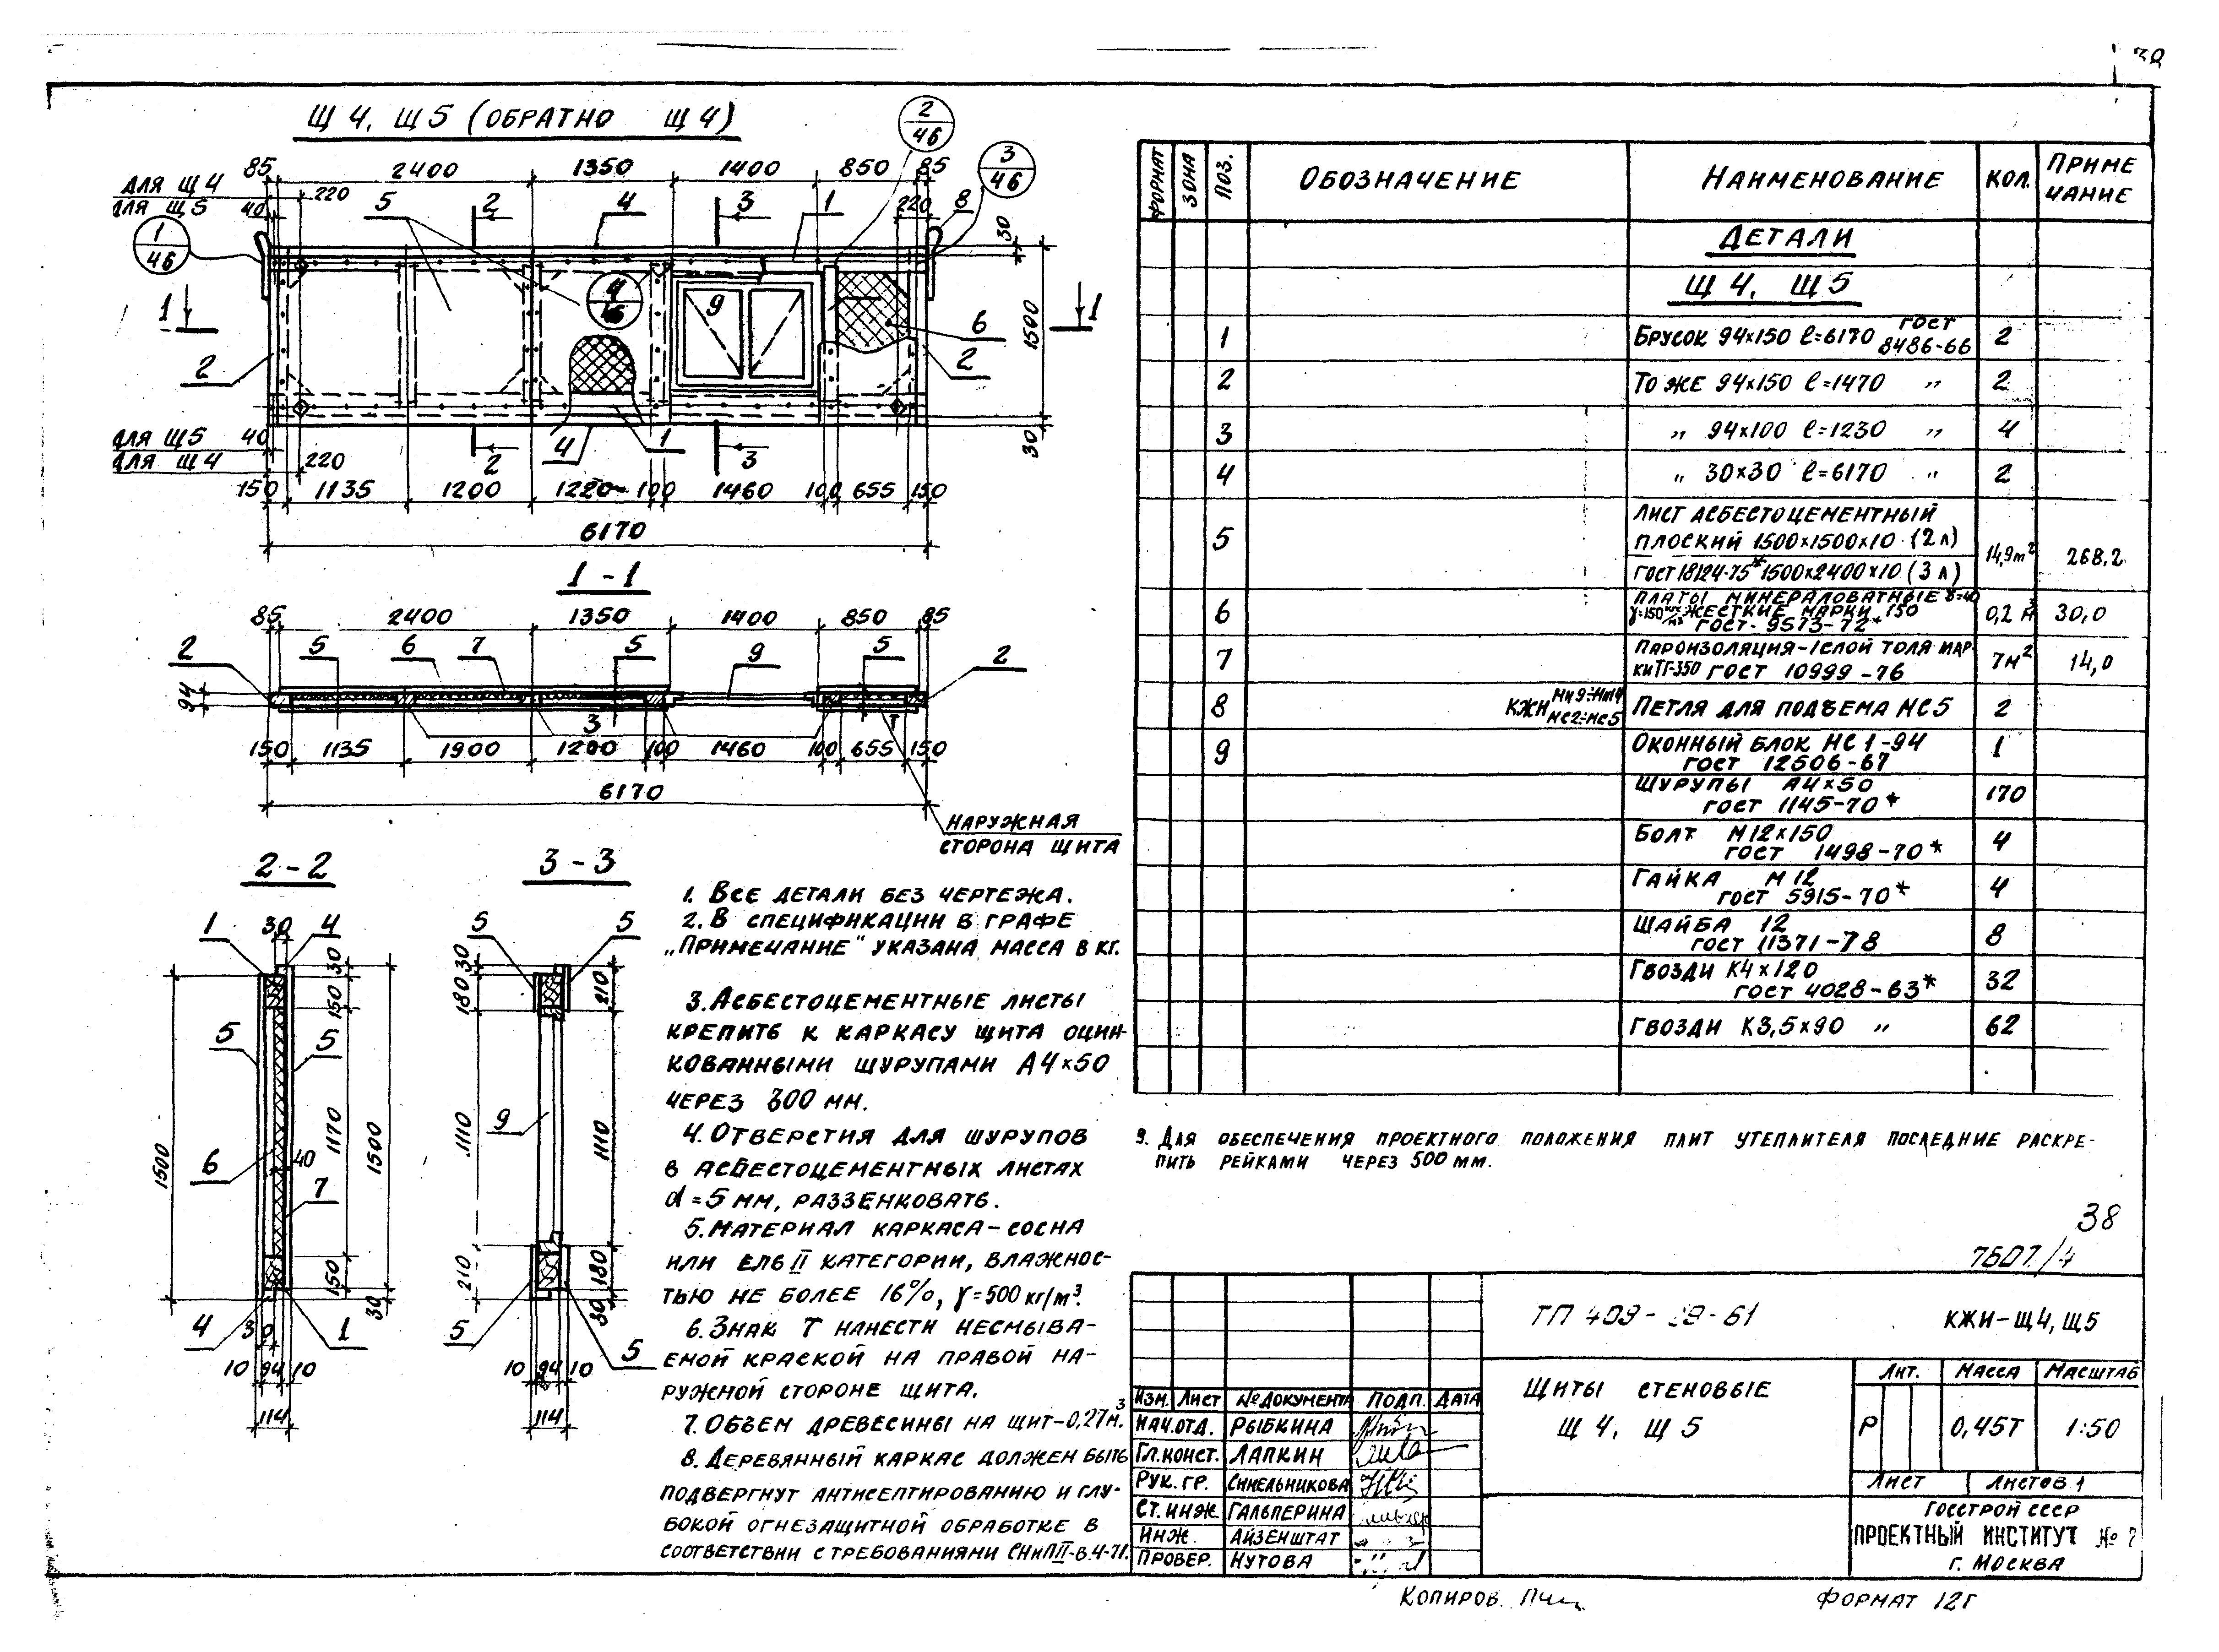 38
Щ 4, Щ 5 (ОБРАТНО Щ 4)
2/46
3/46
85 2400 1350 1400 850 85
ДЛЯ Щ 4 220
ДЛЯ Щ 5 40 5 2 4 3 1 220 8
1/46
30
4
9
1 1
6
1500
2 2
ДЛЯ Щ5 40
ДЛЯ Щ4 220
2 4 1 3
30
150 1135 1200 1220 100 1460 100 655 150
6170
1 - 1
85 2400 1350 1400 850 85
2 5 6 7 5 9 5 2
94
3
150 1135 1900 1200 100 1460 100 655 150
6170
НАРУЖНАЯ
СТОРОНА ЩИТА
2 - 2
1 30 4
30
150
5 5
1500 6 40 1170 1500
7
150
30
4 30 1
10 94 10
114
3 - 3
5 5
30
180 210
1110 9 1110
210 180
30
5 5
10 94 10
114
1. ВСЕ ДЕТАЛИ БЕЗ ЧЕРТЕЖА.
2. В СПЕЦИФИКАЦИИ В ГРАФЕ
„ПРИМЕЧАНИЕ" УКАЗАНА МАССА В КГ.
3. АСБЕСТОЦЕМЕНТНЫЕ ЛИСТЫ
КРЕПИТЬ К КАРКАСУ ЩИТА ОЦИН-
КОВАННЫМИ ШУРУПАМИ А4×50
ЧЕРЕЗ 300 ММ.
4. ОТВЕРСТИЯ ДЛЯ ШУРУПОВ
В АСБЕСТОЦЕМЕНТНЫХ ЛИСТАХ
d = 5 ММ, РАЗЗЕНКОВАТЬ.
5. МАТЕРИАЛ КАРКАСА - СОСНА
ИЛИ ЕЛЬ II КАТЕГОРИИ, ВЛАЖНОС-
ТЬЮ НЕ БОЛЕЕ 16%, γ = 500 кг/м³.
6. ЗНАК Т НАНЕСТИ НЕСМЫВА-
ЕМОЙ КРАСКОЙ НА ПРАВОЙ НА-
РУЖНОЙ СТОРОНЕ ЩИТА.
7. ОБЪЕМ ДРЕВЕСИНЫ НА ЩИТ - 0,27 М³.
8. ДЕРЕВЯННЫЙ КАРКАС ДОЛЖЕН БЫТЬ
ПОДВЕРГНУТ АНТИСЕПТИРОВАНИЮ И ГЛУ-
БОКОЙ ОГНЕЗАЩИТНОЙ ОБРАБОТКЕ В
СООТВЕТСТВИИ С ТРЕБОВАНИЯМИ СНиП II-В.4-71.
ФОРМАТ ЗОНА ПОЗ. ОБОЗНАЧЕНИЕ НАИМЕНОВАНИЕ КОЛ. ПРИМЕ
ЧАНИЕ
ДЕТАЛИ
Щ 4, Щ 5
1 БРУСОК 94×150 ℓ=6170 ГОСТ 8486-66 2
2 ТО ЖЕ 94×150 ℓ=1470 „ 2
3 „ 94×100 ℓ=1230 „ 4
4 „ 30×30 ℓ=6170 „ 2
5 ЛИСТ АСБЕСТОЦЕМЕНТНЫЙ
ПЛОСКИЙ 1500×1500×10 (2 Л)
ГОСТ 18124-75* 1500×2400×10 (3 Л) 14,9 м² 268,2
6 ПЛИТЫ МИНЕРАЛОВАТНЫЕ δ=40
γ=150 кг/м³ ЖЕСТКИЕ МАРКИ 150
ГОСТ- 9573-72* 0,2 м³ 30,0
7 ПАРОИЗОЛЯЦИЯ-1СЛОЙ ТОЛЯ МАР-
КИ ТГ-350 ГОСТ 10999-76 7 м² 14,0
8 КЖИ МН9÷МН14 МС2÷МС5 ПЕТЛЯ ДЛЯ ПОДЪЕМА МС5 2
9 ОКОННЫЙ БЛОК НС 1-94
ГОСТ 12506-67 1
ШУРУПЫ А4×50
ГОСТ 1145-70* 170
БОЛТ М12×150
ГОСТ 1498-70* 4
ГАЙКА М 12
ГОСТ 5915-70* 4
ШАЙБА 12
ГОСТ 11371-78 8
ГВОЗДИ К4×120
ГОСТ 4028-63* 32
ГВОЗДИ К3,5×90 „ 62
9. ДЛЯ ОБЕСПЕЧЕНИЯ ПРОЕКТНОГО ПОЛОЖЕНИЯ ПЛИТ УТЕПЛИТЕЛЯ ПОСЛЕДНИЕ РАСКРЕ-
ПИТЬ РЕЙКАМИ ЧЕРЕЗ 500 ММ.
38
7607/4
ТП 409-  -61 КЖИ-Щ4, Щ5
ЩИТЫ СТЕНОВЫЕ
Щ 4, Щ 5
ЛИТ. МАССА МАСШТАБ
Р 0,45Т 1:50
ЛИСТ ЛИСТОВ 1
ГОССТРОЙ СССР
ПРОЕКТНЫЙ ИНСТИТУТ №
Г. МОСКВА
ИЗМ. ЛИСТ № ДОКУМЕНТА ПОДП. ДАТА
НАЧ.ОТД. РЫБКИНА
ГЛ.КОНСТ. ЛАПКИН
РУК. ГР. СИНЕЛЬНИКОВА
СТ.ИНЖ. ГАЛЬПЕРИНА
ИНЖ. АЙЗЕНШТАТ
ПРОВЕР. НУТОВА
КОПИРОВ.
ФОРМАТ 12Г